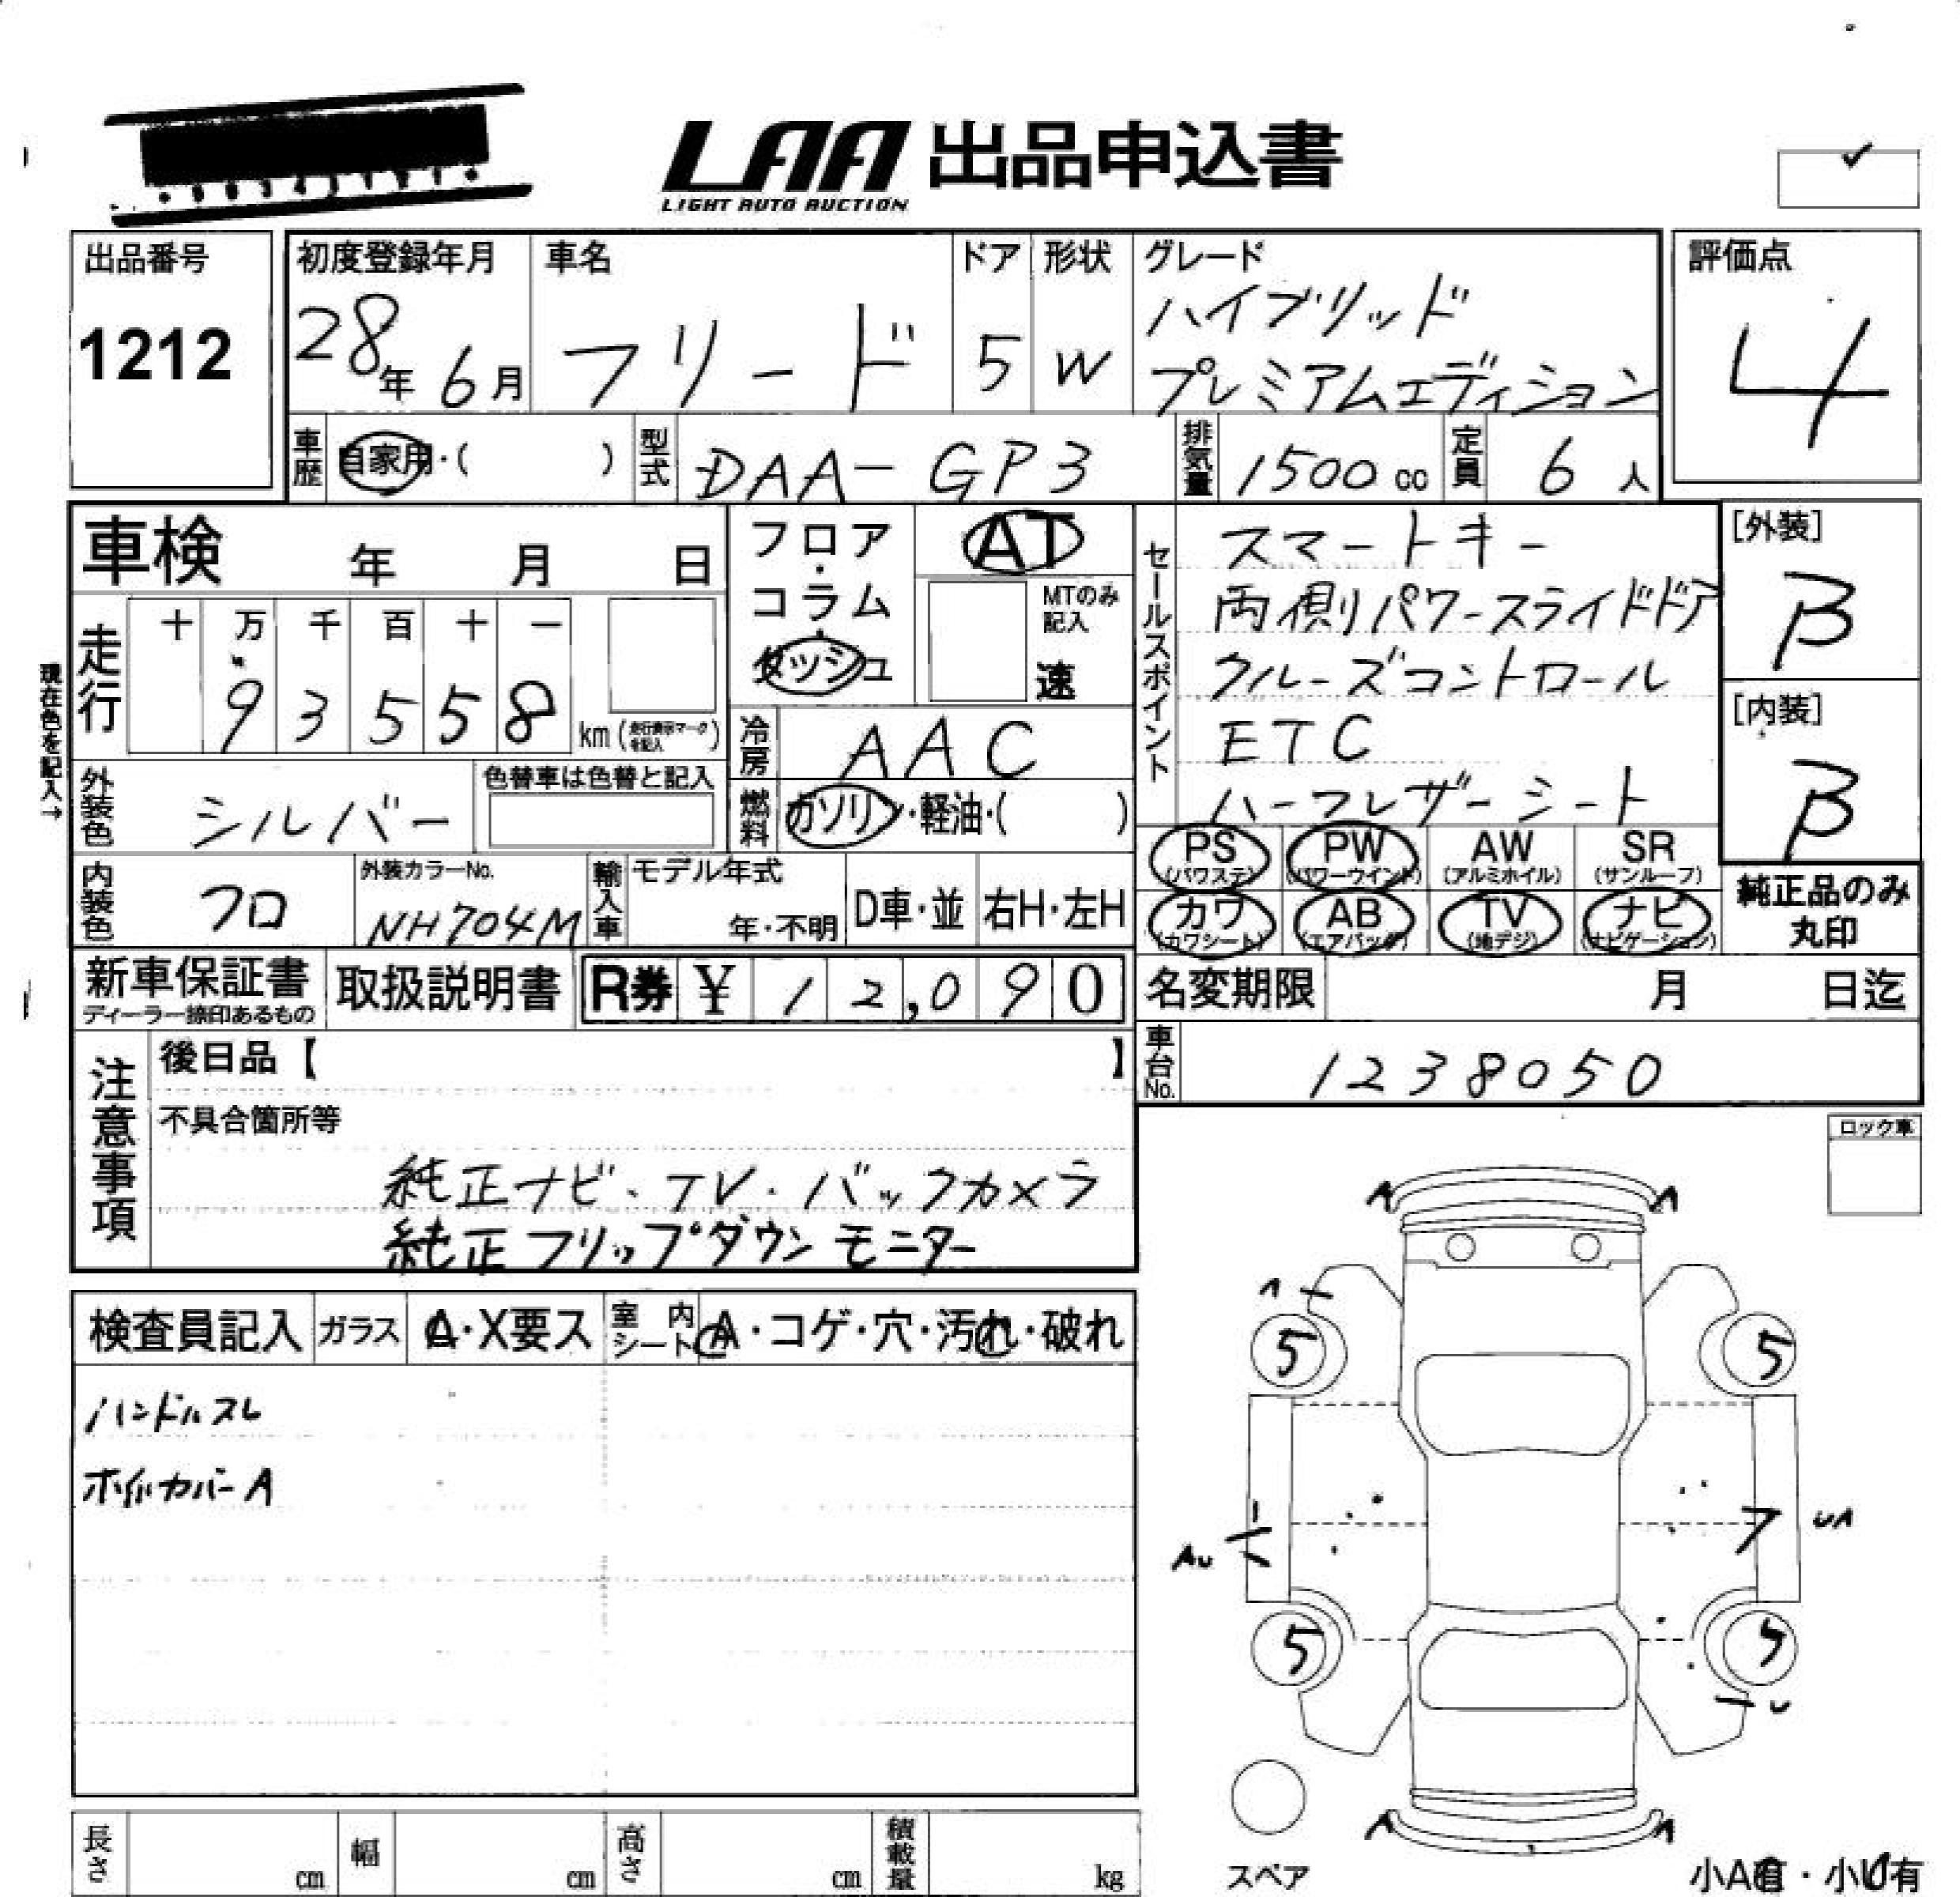 LAA 出品申込書
LIGHT AUTO AUCTION
出品番号
1212
初度登録年月
28年 6月
車名
フリード
ドア
5
形状
W
グレード
ハイブリッド
プレミアムエディション
評価点
4
車歴
自家用・( )
型式
DAA-GP3
排気量
1500 cc
定員
6 人
車検 年 月 日
フロア・コラム
ダッシュ
AT
MTのみ記入
速
セールスポイント
スマートキー
両側パワースライドドア
クルーズコントロール
ETC
ハーフレザーシート
[外装]
β
[内装]
β
現在色を記入→
走行
十 万 千 百 十 一
9 3 5 5 8
km (走行表示マークを記入)
冷房
AAC
外装色
シルバー
色替車は色替と記入
燃料
ガソリン・軽油・( )
PS (パワステ)
PW (パワーウインド)
AW (アルミホイル)
SR (サンルーフ)
内装色
クロ
外装カラーNo.
NH704M
輸入車
モデル年式
年・不明
D車・並
右H・左H
カワ (カワシート)
AB (エアバッグ)
TV (地デジ)
ナビ (ナビゲーション)
純正品のみ
丸印
新車保証書
ディーラー捺印あるもの
取扱説明書
R券 ¥ 12,090
名変期限 月 日迄
車台No.
1238050
注意事項
後日品【 】
不具合箇所等
純正ナビ・TV・バックカメラ
純正フリップダウンモニター
ロック車
検査員記入
ガラス
A・X要ス
室内シート
A・コゲ・穴・汚れ・破れ
ハンドルスレ
ホイルカバーA
A A
A
5 5
AU
UA
5 5
U
A A
スペア
小A有・小U有
長さ cm
幅 cm
高さ cm
積載量 kg